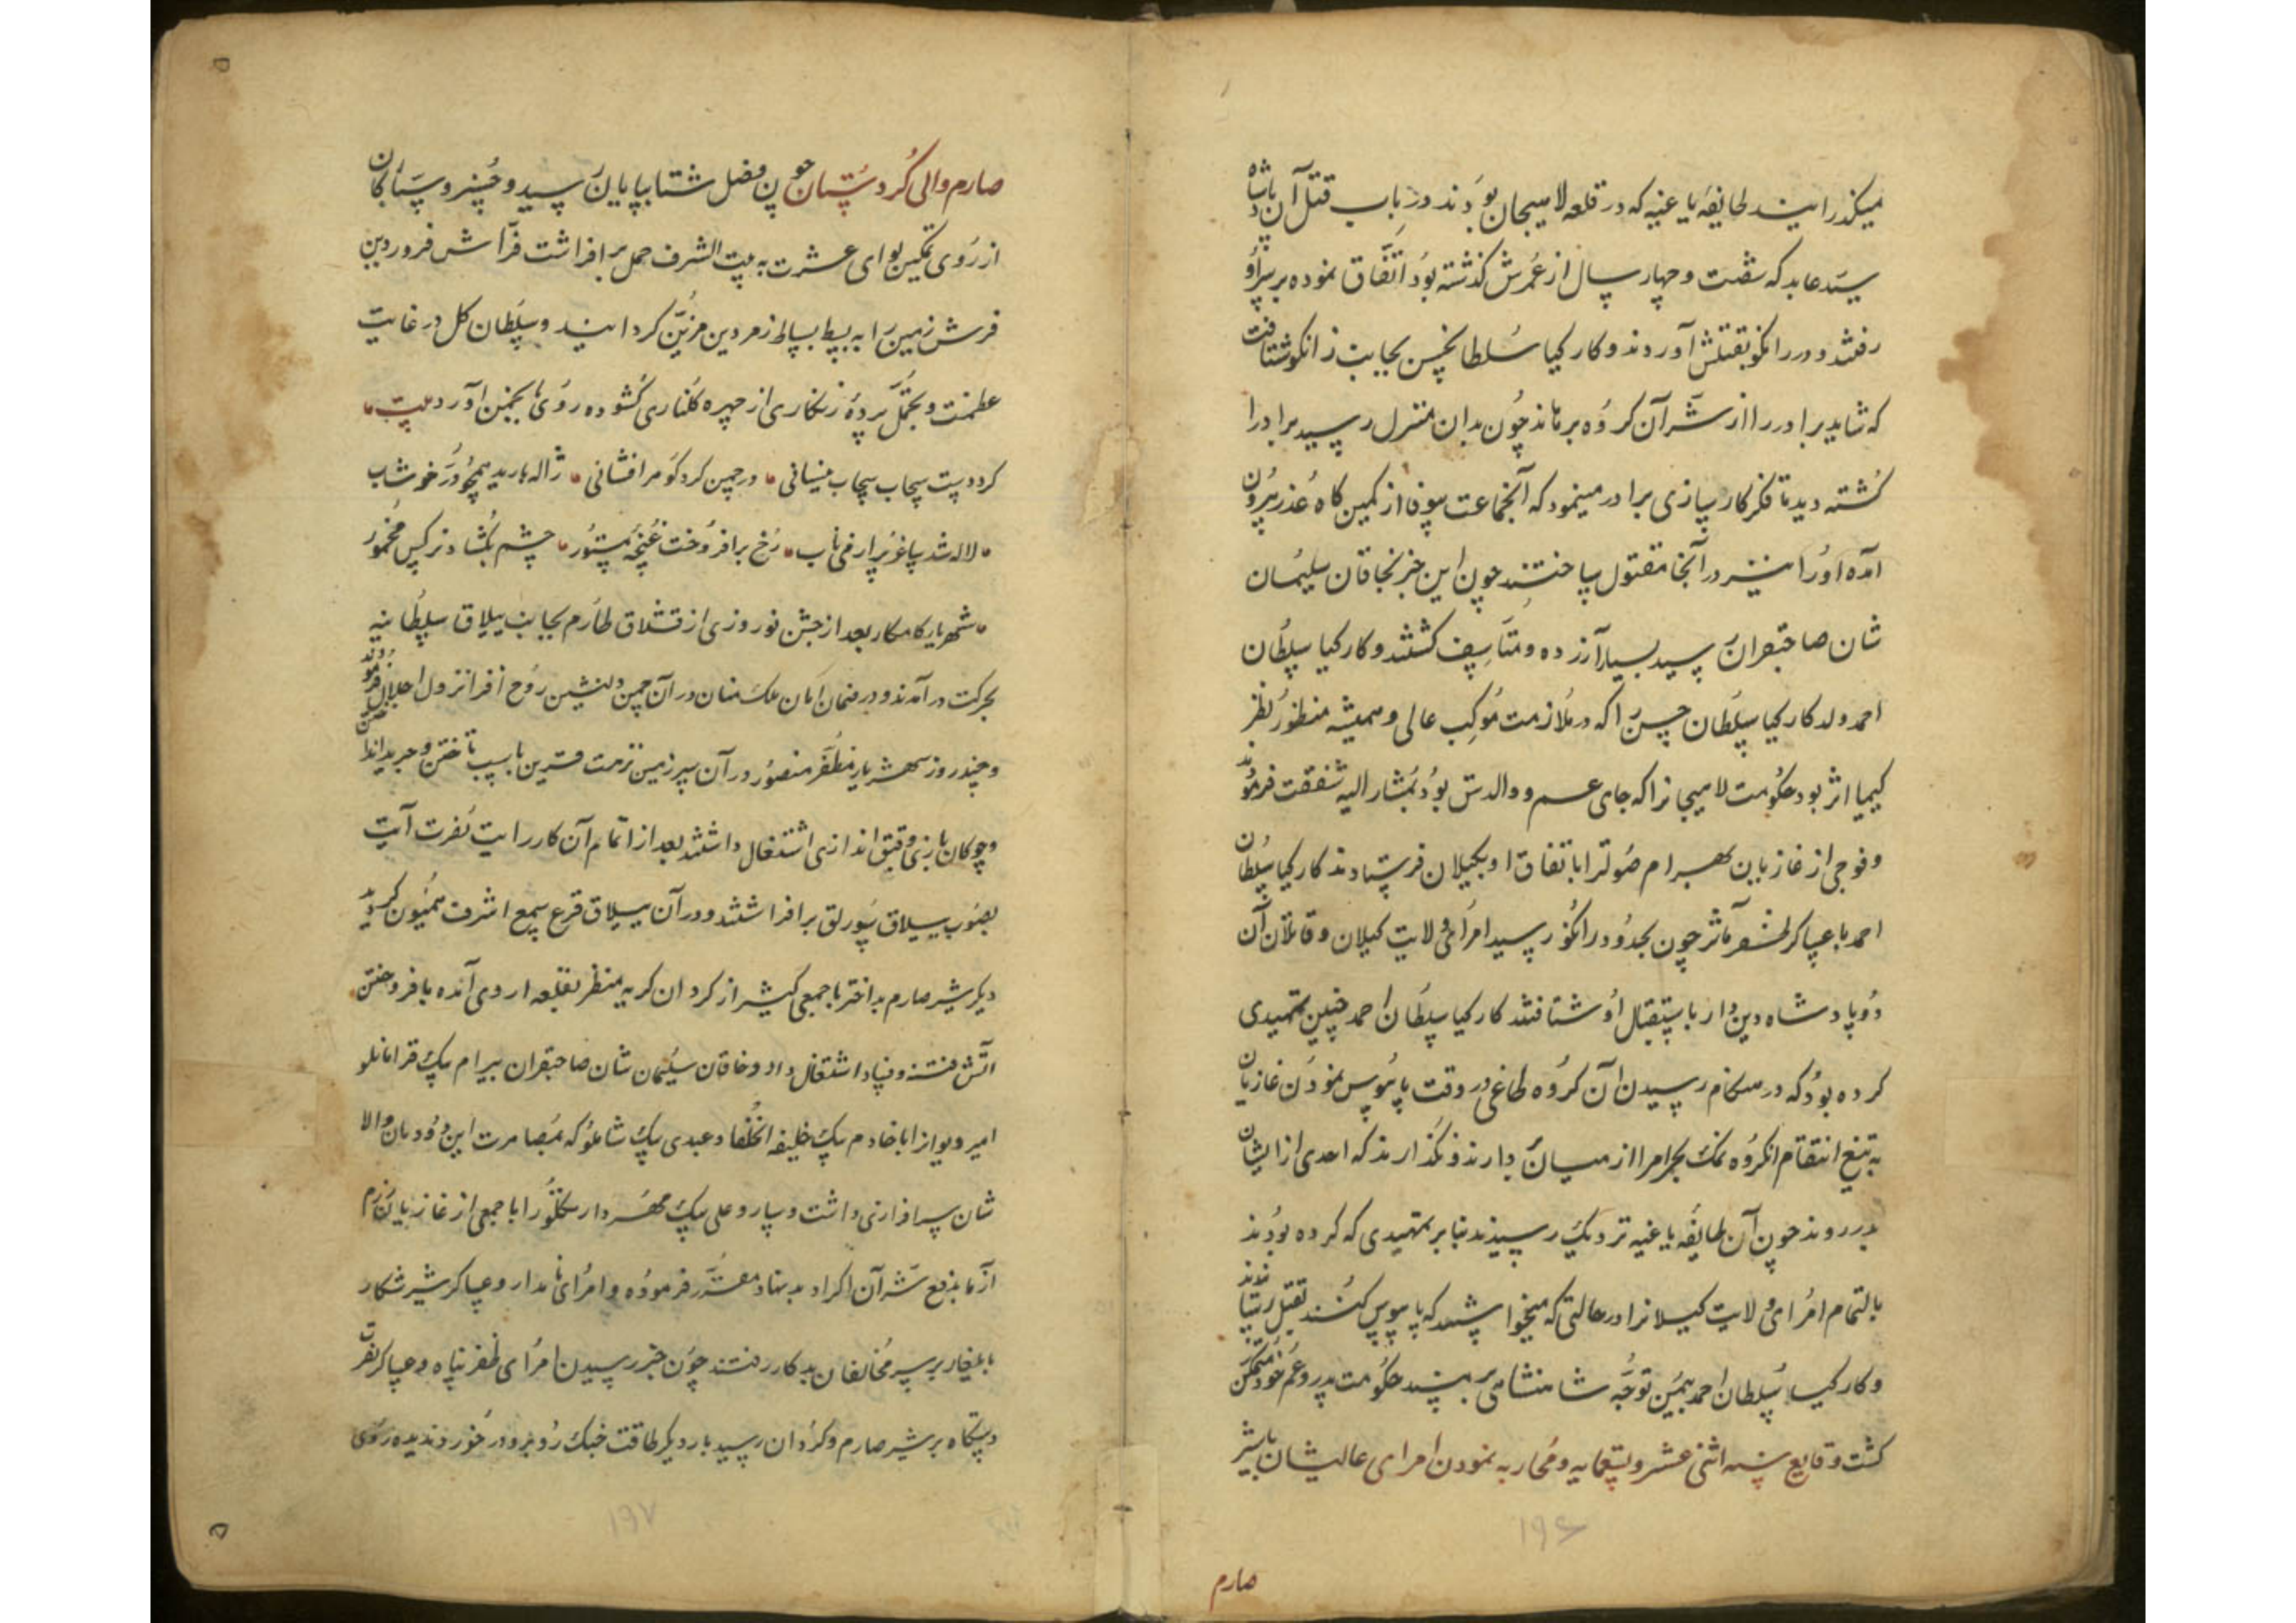 میکذرانیدند طایفهٔ یاغیه که در قلعه لاسیجان بودند در باب قتل آن پادشاه
سید عابد که شصت و چهار سال از عمرش کذشته بود اتفاق نموده بر سر او
رفتند و در رانکو بقتلش آوردند و کارکیا سلطانحسن بجانب رانکو شتافت
که شاید برادر را از شر آن کروه برهاند چون بدان منزل رسید برادر را
کشته دید تا فکر کارسازی برادر مینمود که آنجماعت بیوفا از کمین کاه غدر بیرون
آمده او را نیز در آنجا مقتول ساختند چون این خبر بخاقان سلیمان
شان صاحبقران رسید بسیار آزرده و متاسف کشتند و کارکیا سلطان
احمد ولد کارکیا سلطان حسن را که در ملازمت موکب عالی و همیشه منظور نظر
کیمیا اثر بود حکومت لاسیجانرا که جای عم و والدش بود بمشارالیه شفقت فرمودند
و فوجی از غازیان بهرام صولترا باتفاق او بکیلان فرستادند کارکیا سلطان
احمد با عساکر ظفر مآثر چون بحدود رانکو رسید امرای ولایت کیلان و قاتلان آن
دو پادشاه دین دار باستقبال او شتافتند کارکیا سلطان احمد چنین تمهیدی
کرده بود که در هنکام رسیدن آن کروه طاغی در وقت پابوس نمودن غازیان
به تیغ انتقام انکروه نمک بحرامرا از میان بردارند و نکذارند که احدی از ایشان
بدر روند چون آن طایفه یاغیه نزدیک رسیدند بنا بر تمهیدی که کرده بودند
بالتمام امرای ولایت کیلانرا در حالتی که میخواستند که پابوس کنند بقتل رسانیدند
و کارکیا سلطان احمد بیمن توجه شاهنشاهی بر مسند حکومت پدر و عم خود متمکن
کشت وقایع سنه اثنی عشر و تسعمایه و محاربه نمودن امرای عالیشان با شیر
صارم
۱۹۶
صارم والی کردستان چون فصل شتا بپایان رسید و خسرو سیارکان
از روی تمکین لوای عشرت به بیت الشرف حمل برافراشت فراش فروردین
فرش زمین را به بسط بساط زمردین مزین کردانید و سلطان کل در غایت
عظمت و تجمل پردهٔ زنکاری از چهره کلناری کشوده روی بانجمن آورد بیت
کرد دست سحاب سحاب نیسانی در چمن کرد کوهر افشانی ژاله بارید همچو در خوشاب
لاله شد ساغر پر از می ناب رخ برافروخت غنچه مستور چشم بکشاد نرکس مخمور
شهریار کامکار بعد از جشن نوروزی از قشلاق طارم بجانب ییلاق سلطانیه
بحرکت درآمدند و در ضمان امان ملک منان در آن چمن دلنشین روح افزا نزول اجلال فرمودند
و چند روز شهریار مظفر منصور در آن سرزمین نزهت قرین باسب تاختن و جرید انداختن
و چوکان بازی و قبق اندازی اشتغال داشتند بعد از اتمام آن کار رایت نصرت آیت
بصوب ییلاق سورلق برافراشتند و در آن ییلاق قرع سمع اشرف همیون کردید
دیکر شیر صارم بداختر با جمعی کثیر از کردان کریه منظر بقلعه اروی آمده بافروختن
آتش فتنه و فساد اشتغال داد و خاقان سلیمان شان صاحبقران بیرام بیک قرامانلو
امیر دیوانرا با خادم بیک خلیفه الخلفا و عبدی بیک شاملو که بمصاهرت این دودمان والا
شان سرافرازی داشت و سارو علی بیک مهردار تکلو را با جمعی از غازیان رزم
آزما بدفع شر آن اکراد بدنهاد مقرر فرموده و امرای نامدار و عساکر شیر شکار
بایلغار بر سر مخالفان بدکار رفتند چون خبر رسیدن امرای ظفر پناه و عساکر نصرت
دستکاه بر شیر صارم و کردان رسید بار دیکر طاقت جنک رو برو در خور دیده روی
۱۹۷